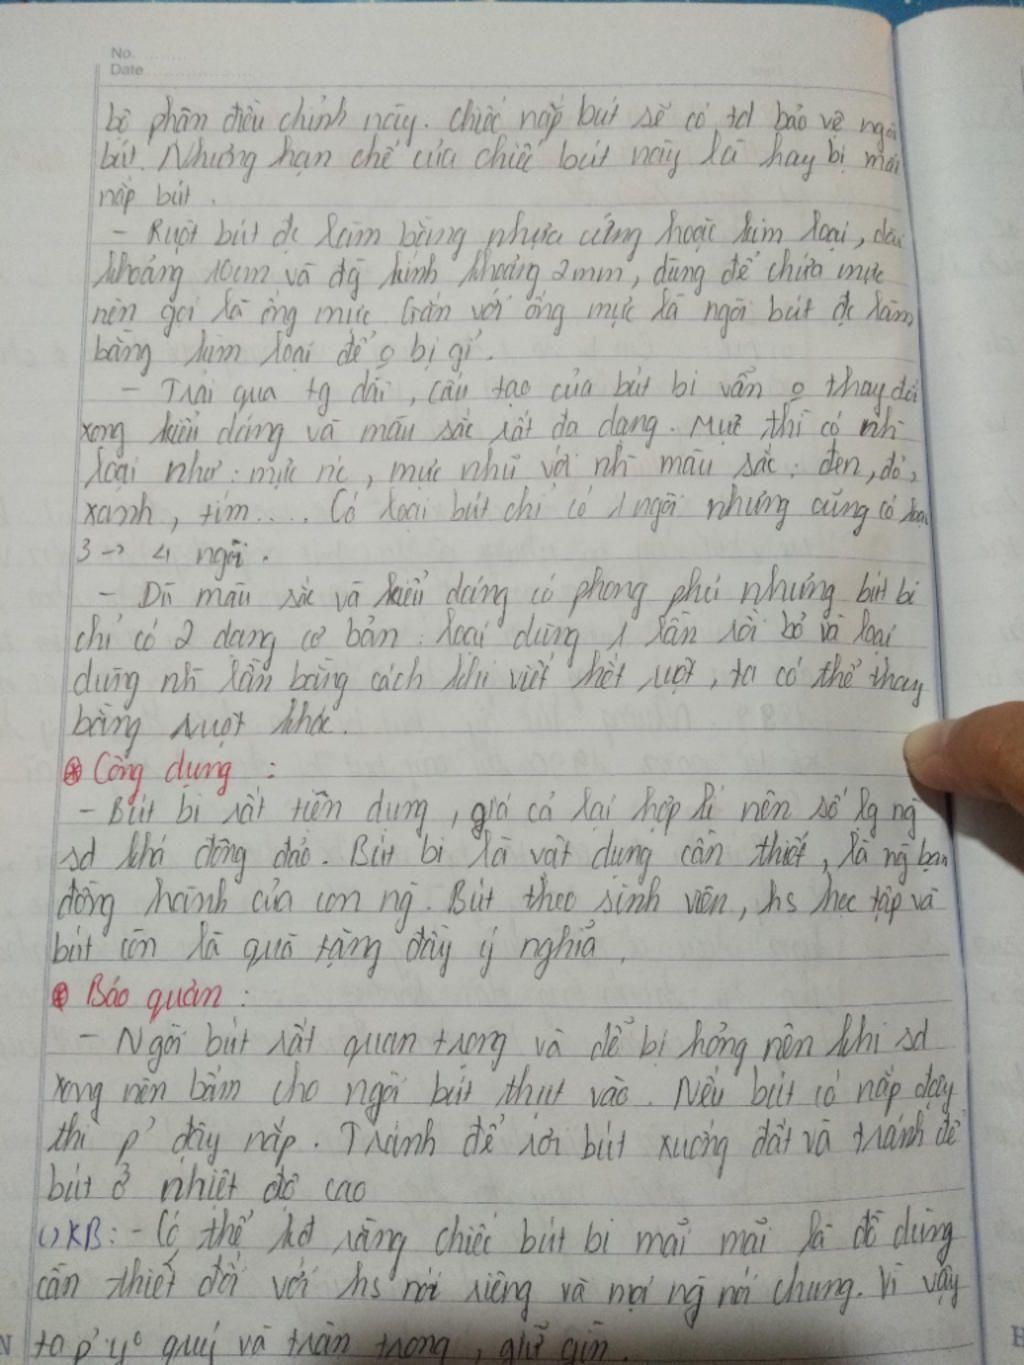 No.
Date
bộ phận điều chỉnh này. chiếc nắp bút sẽ có td bảo vệ ngòi
bút. Nhưng hạn chế của chiếc bút này là hay bị mất
nắp bút.
- Ruột bút đc làm bằng nhựa cứng hoặc kim loại, dài
khoảng 10cm và đg kính khoảng 2mm, dùng để chứa mực
nên gọi là ống mực. Gắn với ống mực là ngòi bút đc làm
bằng kim loại để o bị gỉ.
- Trải qua tg dài, cấu tạo của bút bi vẫn o thay đổi
xong kiểu dáng và màu sắc rất đa dạng. Mực thì có nh
loại như: mực nc, mực nhũ với nh màu sắc: đen, đỏ,
xanh, tím.... Có loại bút chỉ có 1 ngòi nhưng cũng có loại
3 → 4 ngòi.
- Dù màu sắc và kiểu dáng có phong phú nhưng bút bi
chỉ có 2 dạng cơ bản: loại dùng 1 lần rồi bỏ và loại
dùng nh lần bằng cách khi viết hết ruột, ta có thể thay
bằng ruột khác.
⊛ Công dụng:
- Bút bi rất tiện dụng, giá cả lại hợp lí nên số lg ng
sd khá đông đảo. Bút bi là vật dụng cần thiết, là ng bạn
đồng hành của con ng. Bút theo sinh viên, hs học tập và
bút còn là quà tặng đầy ý nghĩa.
⊛ Bảo quản:
- Ngòi bút rất quan trọng và dễ bị hỏng nên khi sd
xong nên bấm cho ngòi bút thụt vào. Nếu bút có nắp đậy
thì p' đậy nắp. Tránh để rơi bút xuống đất và tránh để
bút ở nhiệt độ cao
KB: - Có thể kđ rằng chiếc bút bi mãi mãi là đồ dùng
cần thiết đối với hs nói riêng và mọi ng nói chung. Vì vậy
ta p' yº quý và trân trọng, giữ gìn.